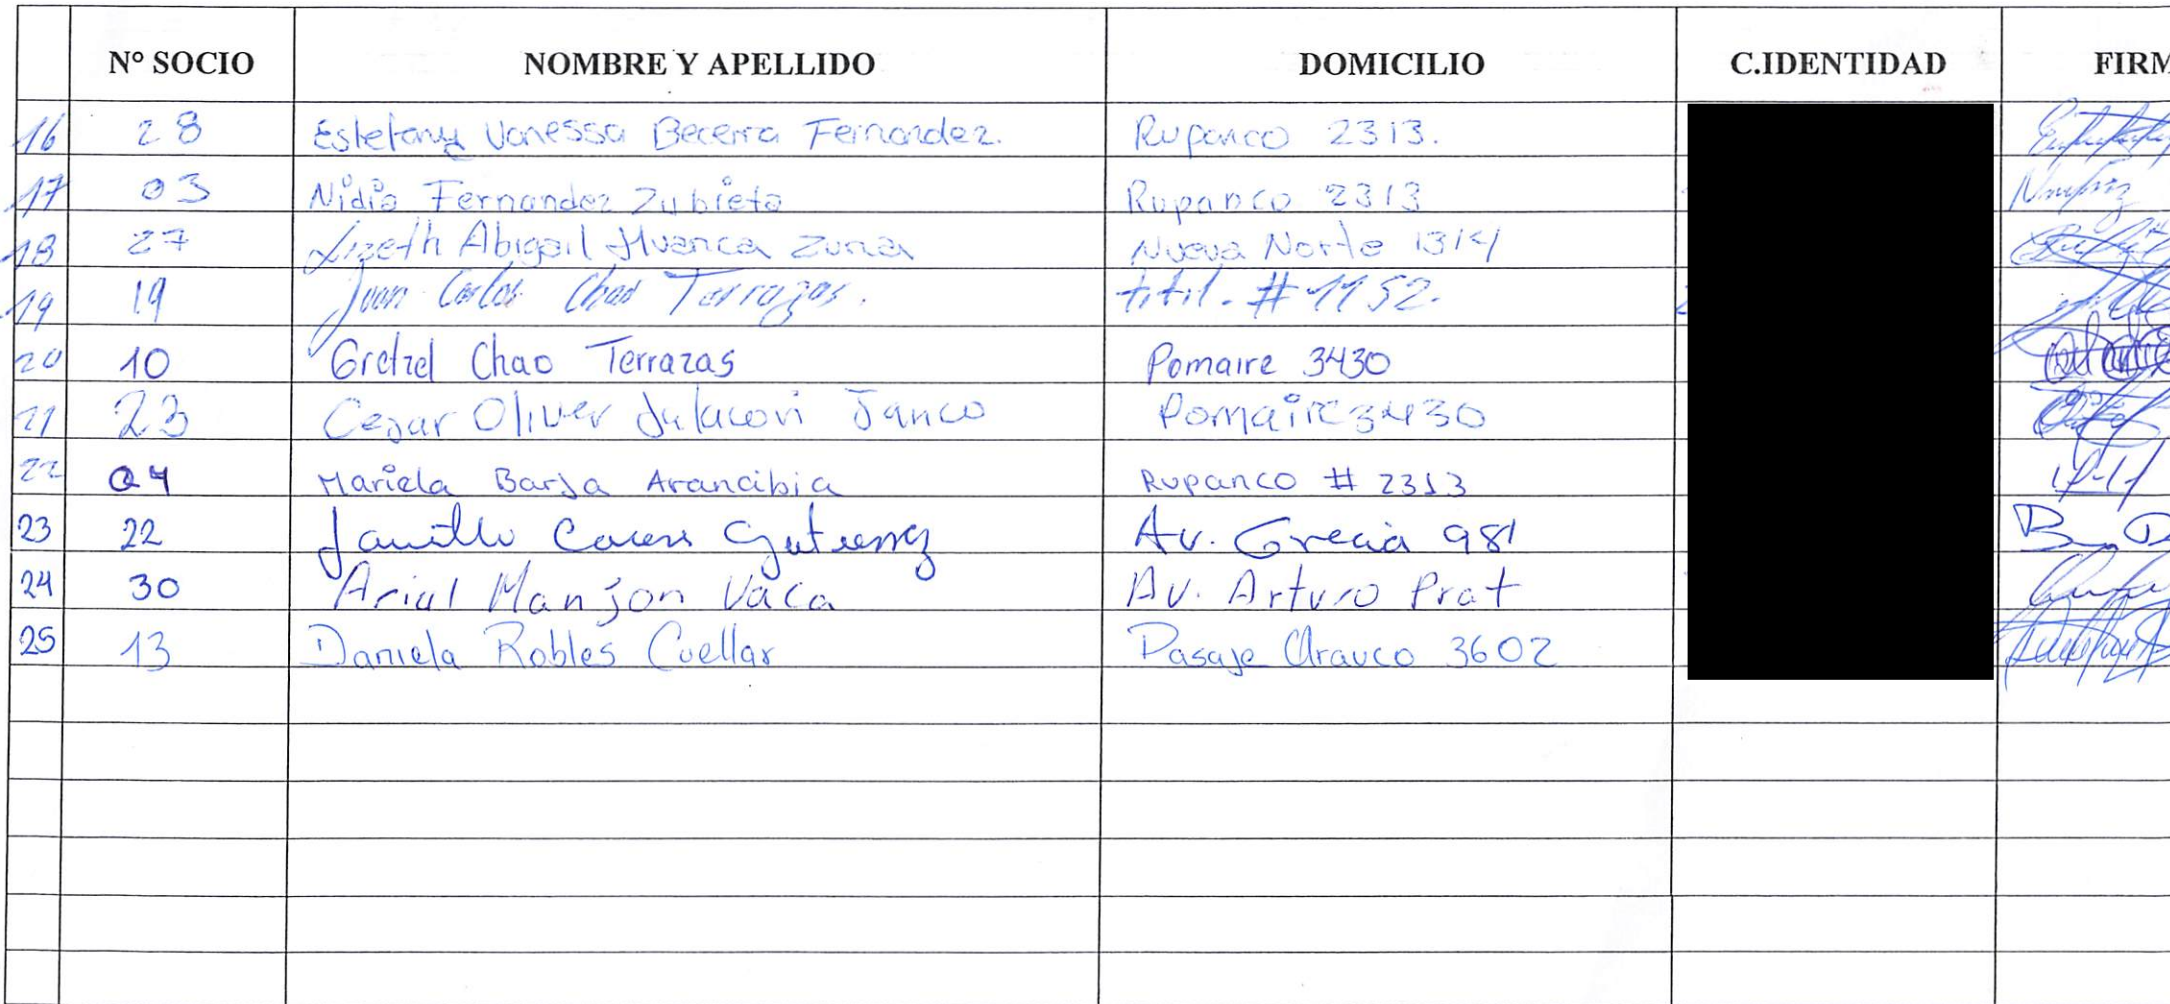 N° SOCIO NOMBRE Y APELLIDO DOMICILIO C.IDENTIDAD FIRM
16 28 Estefany Vanessa Becerra Fernandez. Rupanco 2313.
17 03 Nidia Fernandez Zubieta Rupanco 2313
18 27 Lizeth Abigail Huanca Zuna Nueva Norte 1314
19 19 Juan Carlos Chao Terrazas. # 1152.
20 10 Gretzel Chao Terrazas Pomaire 3430
21 23 Cesar Oliver Janco Pomaire 3430
22 04 Mariela Barja Arancibia Rupanco # 2313
23 22 Gutierrez Av. Grecia 981
24 30 Ariel Manjon Vaca Av. Arturo Prat
25 13 Daniela Robles Cuellar Pasaje Arauco 3602